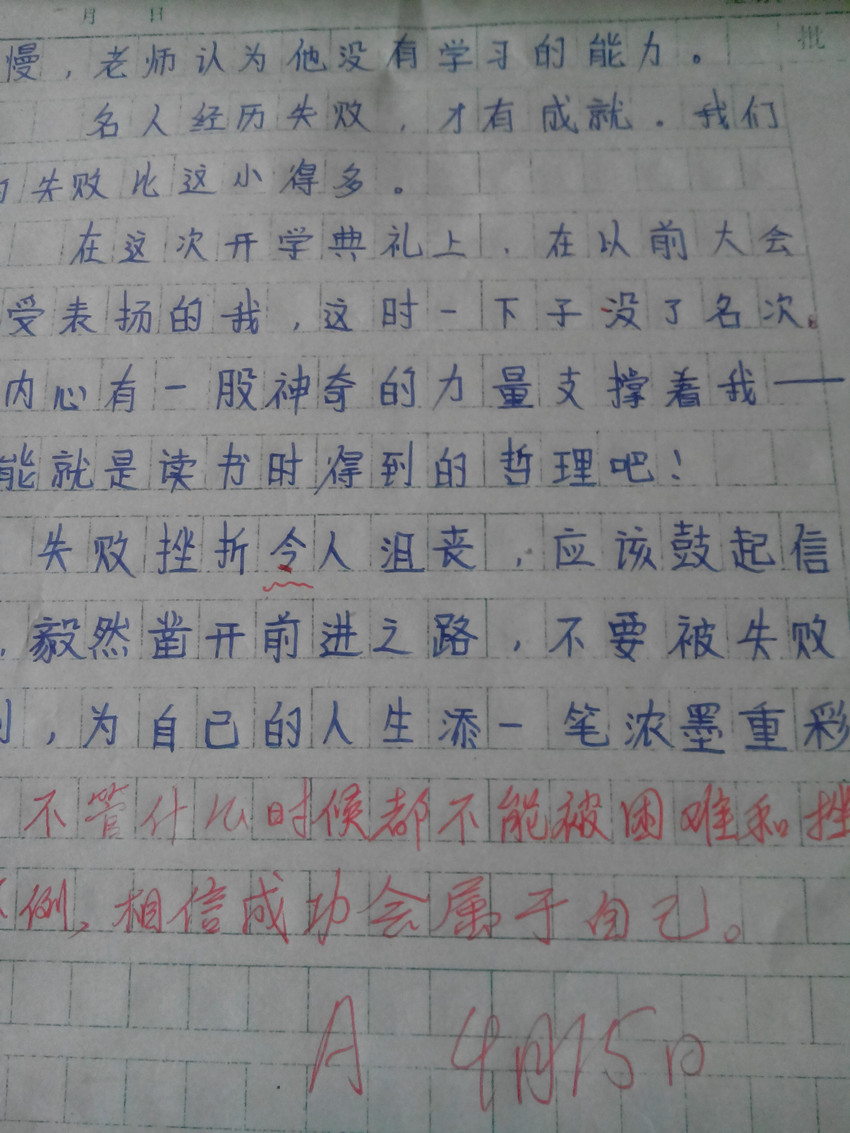 月 日
批
慢，老师认为他没有学习的能力。
名人经历失败，才有成就。我们
失败比这小得多。
在这次开学典礼上，在以前大会
受表扬的我，这时一下子没了名次。
内心有一股神奇的力量支撑着我——
能就是读书时得到的哲理吧！
失败挫折令人沮丧，应该鼓起信
，毅然凿开前进之路，不要被失败
，为自己的人生添一笔浓墨重彩
不管什么时候都不能被困难和挫
倒，相信成功会属于自己。
A 4月15日